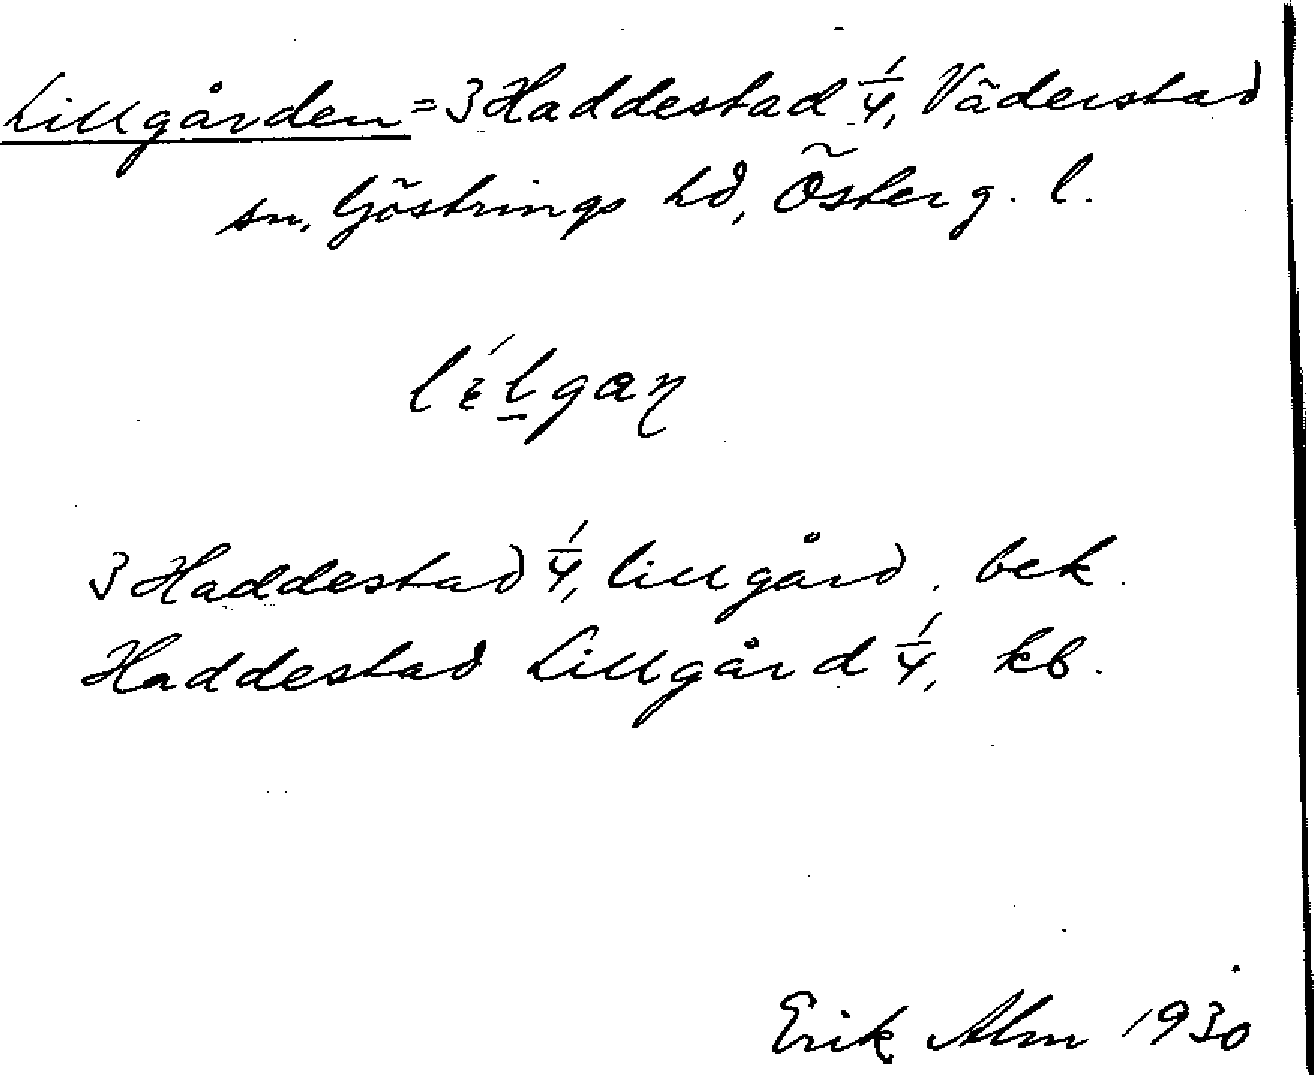 Lillgården = 3 Haddestad 1/4, Väderstad
sn, Göstrings hd, Österg. l.
3 Haddestad 1/4, lillgård, bek.
Haddestad Lillgård 1/4, kb.
Erik Alm 1930